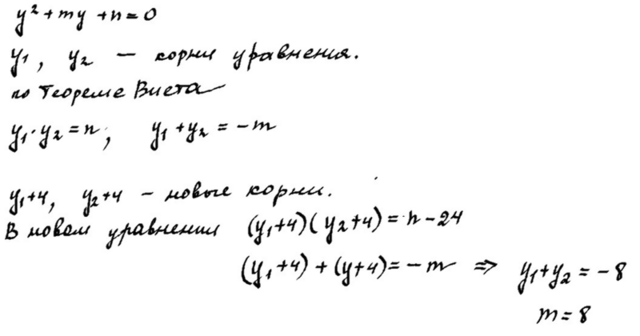 y² + my + n = 0
y₁, y₂ — корни уравнения.
по Теореме Виета
y₁·y₂ = n, y₁ + y₂ = -m
y₁+4, y₂+4 – новые корни.
В новом уравнении (y₁+4)(y₂+4) = n - 24
(y₁+4) + (y+4) = -m ⇒ y₁+y₂ = -8
m = 8